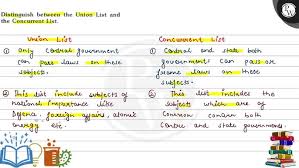 Distinguish between the Union List and
the Concurrent List.
Union List
Concurrent List
① Only Central government
can pass laws on these
subjects.
① Central and state both
government can pass or
frame laws on these
subjects.
② This list include subjects of
national importance like
Defence, foreign affairs, atomic
energy etc.
② This list includes the
subjects which are of
Common concern both
Centre and state governments.